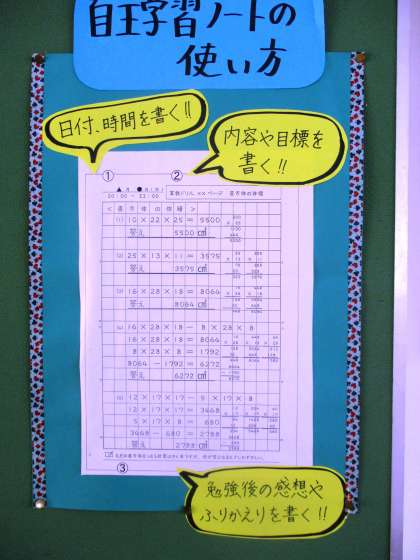 自主学習ノートの
使い方
日付、時間を書く!!
内容や目標を
書く!!
① ②
▲月●日(月)
算数ドリル ××ページ 直方体の体積
<直方体の体積>
(1) 10×22×25=5500
答え 5500 cm³
(2) 25×13×11=3575
答え 3575 cm³
(3) 16×28×18=8064
答え 8064 cm³
(4) 16×28×18-8×28×8
16×28×18=8064
8×28×8=1792
8064-1792=6272
答え 6272 cm³
(5) 12×17×17-5×17×8
12×17×17=3468
5×17×8=680
3468-680=2788
答え 2788 cm³
③
勉強後の感想や
ふりかえりを書く!!